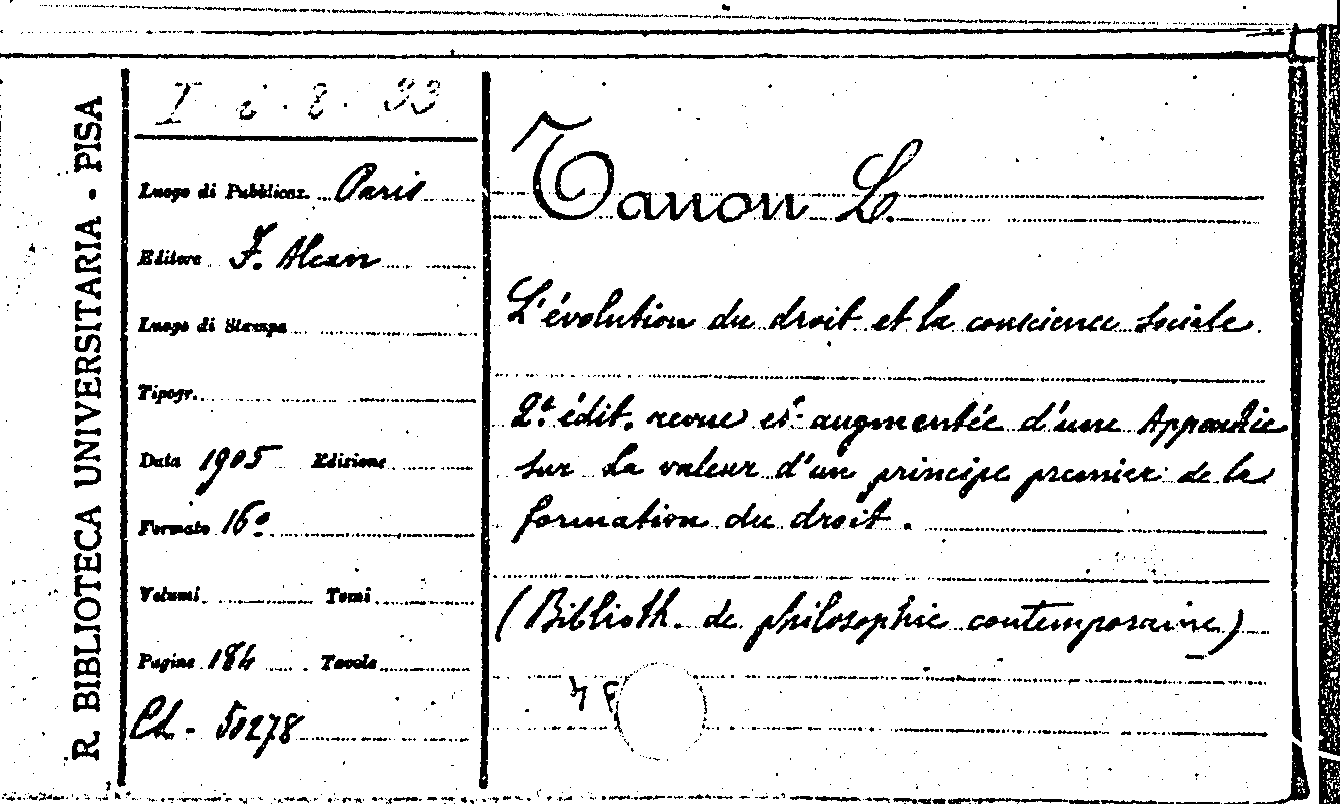 R. BIBLIOTECA UNIVERSITARIA - PISA
Luogo di Pubblicaz. Paris
Editore F. Alcan
Luogo di Stampa
Tipogr.
Data 1905 Edizione
Formato 16º
Volumi Tomi
Pagine 184 Tavole
Ch. - 50278
Tanon L.
L'évolution du droit et la conscience sociale
2.e édit. revue et augmentée d'une Appendice
sur la valeur d'un principe premier de la
formation du droit.
(Biblioth. de philosophie contemporaine)